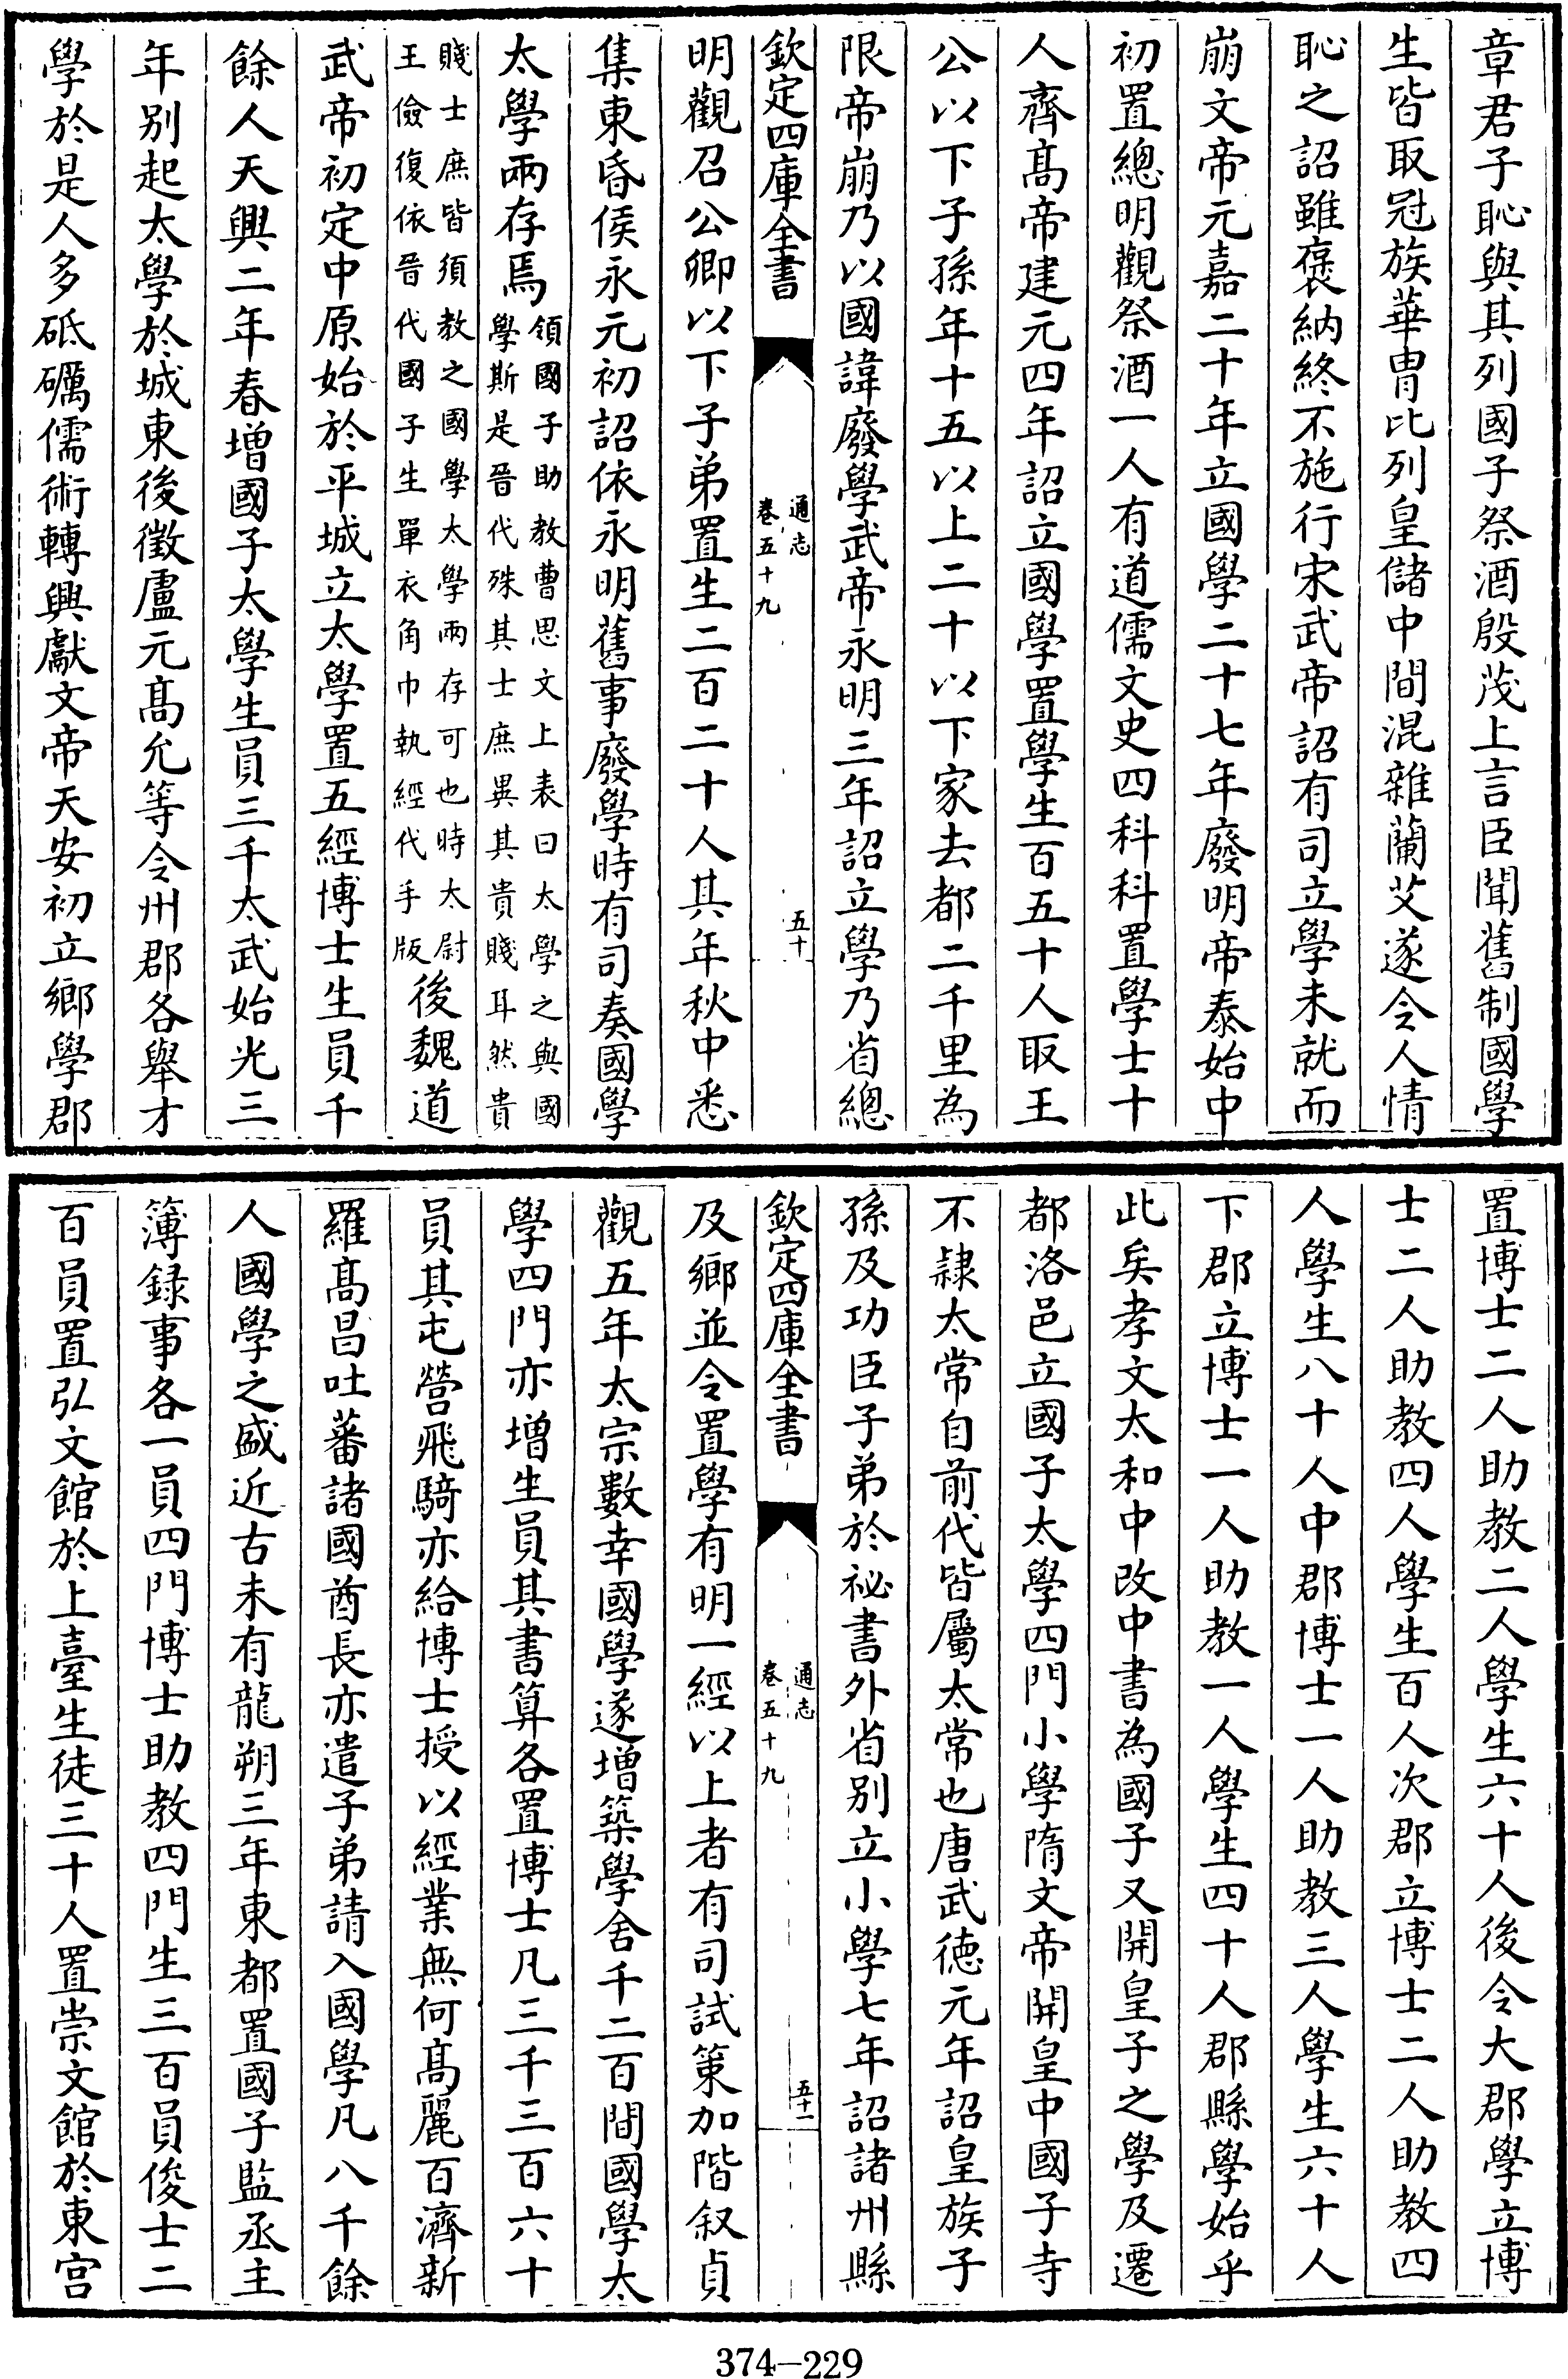 章君子恥與其列國子祭酒殷茂上言臣聞舊制國學
生皆取冠族華胄比列皇儲中間混雜蘭艾遂令人情
恥之詔雖褒納終不施行宋武帝詔有司立學未就而
崩文帝元嘉二十年立國學二十七年廢明帝泰始中
初置總明觀祭酒一人有道儒文史四科科置學士十
人齊髙帝建元四年詔立國學置學生百五十人取王
公以下子孫年十五以上二十以下家去都二千里為
限帝崩乃以國諱廢學武帝永明三年詔立學乃省總
欽定四庫全書
通志
卷五十九
五十
明觀召公卿以下子弟置生二百二十人其年秋中悉
集東昏侯永元初詔依永明舊事廢學時有司奏國學
太學兩存焉領國子助教曹思文上表曰太學之與國
學斯是晉代殊其士庶異其貴賤耳然貴
賤士庶皆須教之國學太學兩存可也時太尉
王儉復依晉代國子生單衣角巾執經代手版後魏道
武帝初定中原始於平城立太學置五經博士生員千
餘人天興二年春增國子太學生員三千太武始光三
年别起太學於城東後徵盧元髙允等令州郡各舉才
學於是人多砥礪儒術轉興獻文帝天安初立鄉學郡
置博士二人助教二人學生六十人後令大郡學立博
士二人助教四人學生百人次郡立博士二人助教四
人學生八十人中郡博士一人助教三人學生六十人
下郡立博士一人助教一人學生四十人郡縣學始乎
此矣孝文太和中改中書為國子又開皇子之學及遷
都洛邑立國子太學四門小學隋文帝開皇中國子寺
不隷太常自前代皆屬太常也唐武徳元年詔皇族子
孫及功臣子弟於祕書外省别立小學七年詔諸州縣
欽定四庫全書
通志
卷五十九
五十一
及鄉並令置學有明一經以上者有司試策加階叙貞
觀五年太宗數幸國學遂增築學舍千二百間國學太
學四門亦增生員其書算各置博士凡三千三百六十
員其屯營飛騎亦給博士授以經業無何髙麗百濟新
羅髙昌吐蕃諸國酋長亦遣子弟請入國學凡八千餘
人國學之盛近古未有龍朔三年東都置國子監丞主
簿録事各一員四門博士助教四門生三百員俊士二
百員置弘文館於上臺生徒三十人置崇文館於東宫
374-229